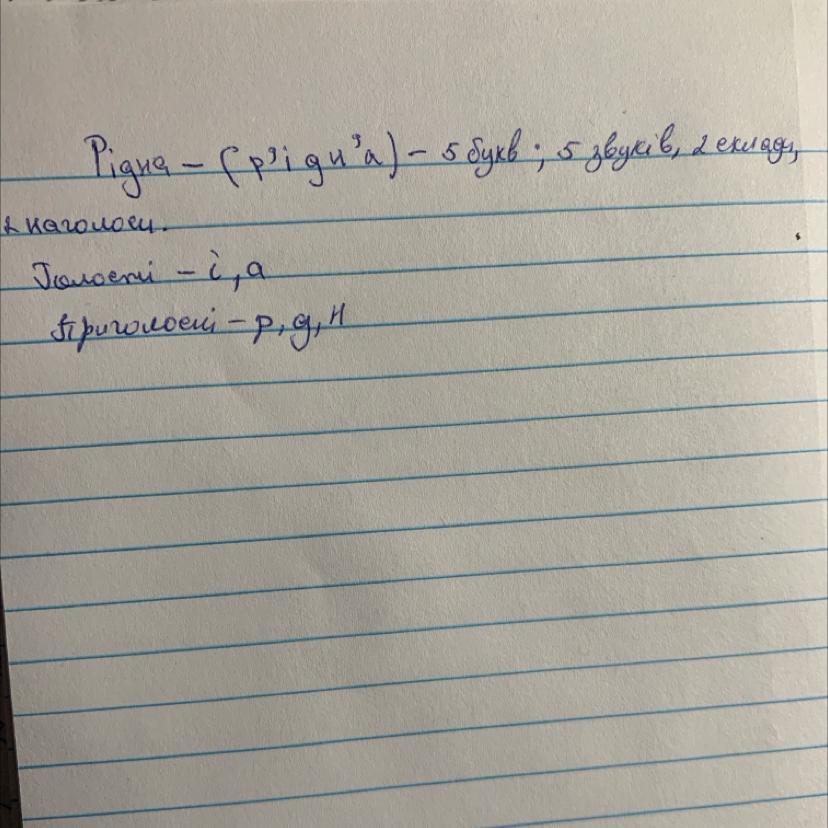 Рідна – (р'ідн'а) – 5 букв; 5 звуків, 2 склади,
2 наголоси.
Голосні – і, а
Приголосні – р, д, н